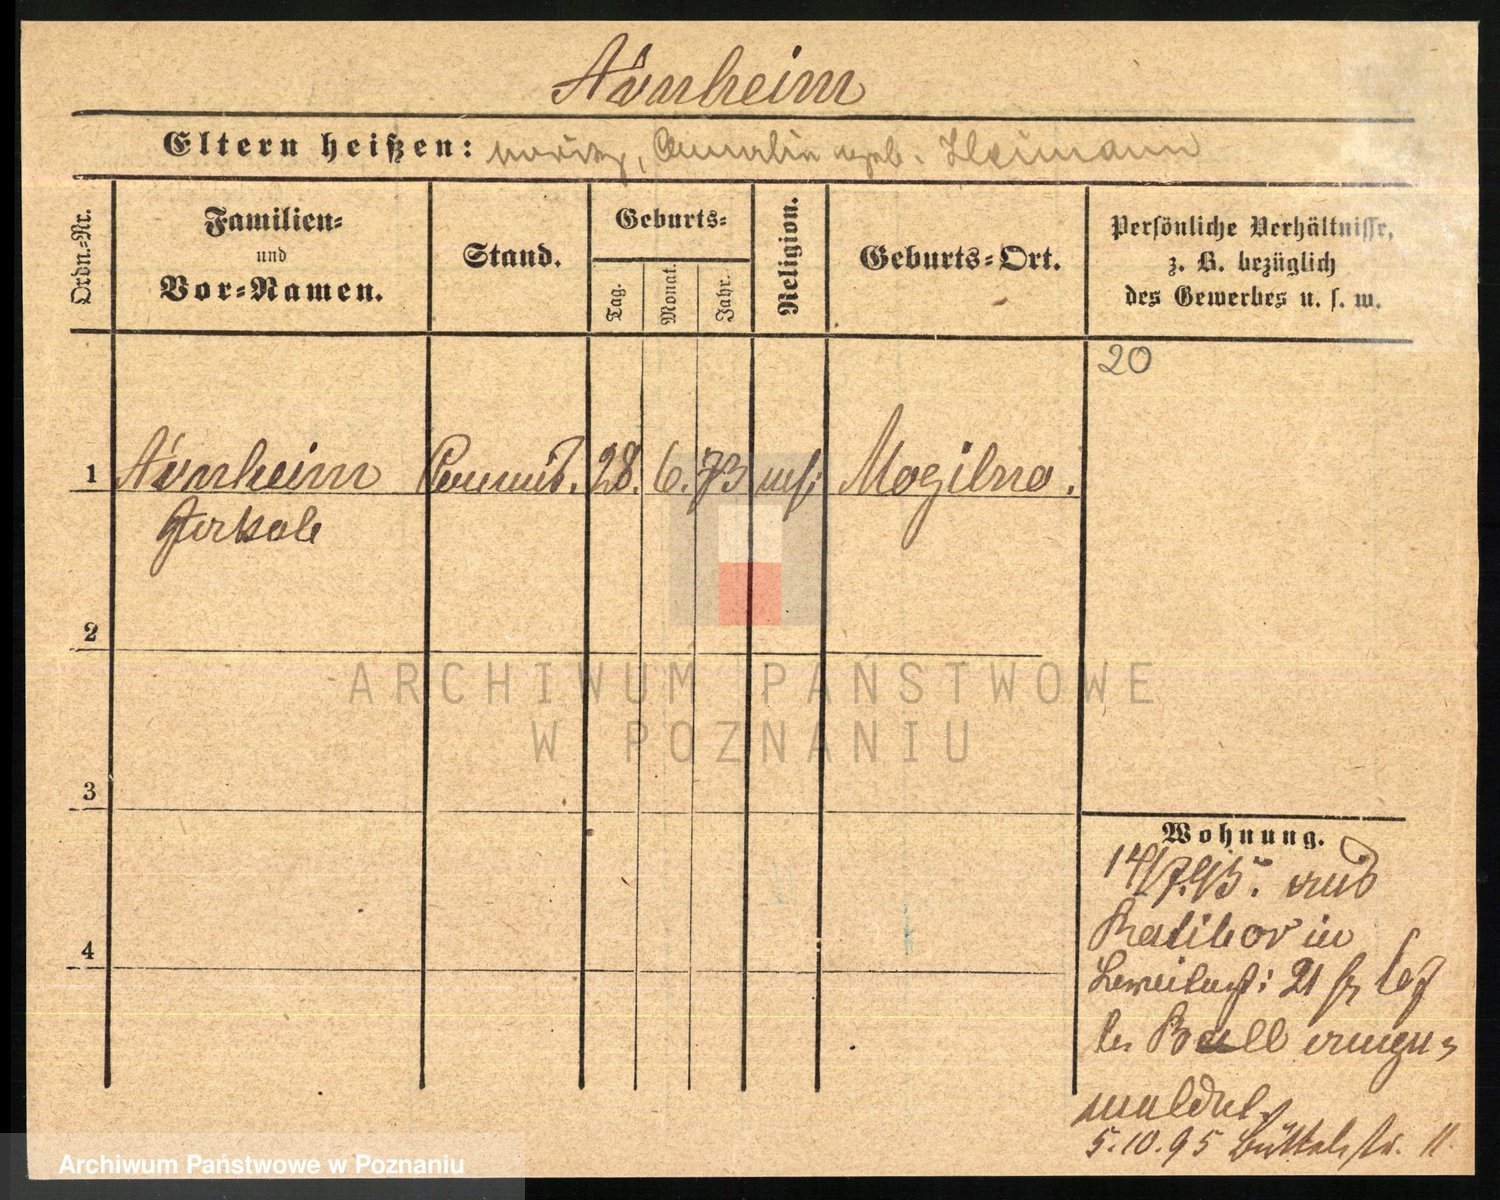 Arnheim
Eltern heißen: Moritz, Amalia geb. Heimann
Ordn.=Nr.
Familien=
und
Vor=Namen.
Stand.
Geburts=
Tag.
Monat.
Jahr.
Religion.
Geburts=Ort.
Persönliche Verhältnisse,
z. B. bezüglich
des Gewerbes u. s. w.
20
1 Arnheim Commis. 28. 6. 73 mos: Mogilno.
2
3
4
Wohnung.
14/7.95. aus
Ratibor in
21
angu=
meldet.
5.10.95 Büttelstr. 11.
ARCHIWUM PAŃSTWOWE
W POZNANIU
Archiwum Państwowe w Poznaniu